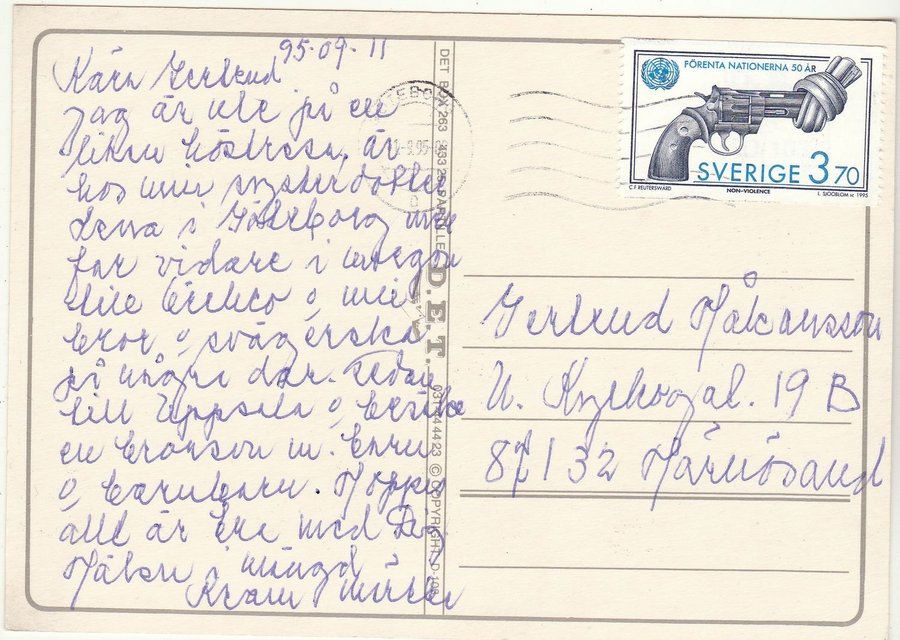 95-09-11
Kära Gertrud
Jag är ute på en
liten höstresa, är
hos min systerdotter
Lena i Göteborg
far vidare i morgon
till Örebro o min
bror o svägerska
på några dar. Sedan
till Uppsala o besöka
en brorson m. barn
o barnbarn. Hoppas
allt är bra med Dig
Hälsn i mängd
Kram
DET BOX 263 433 25 PARTILLE
D.E.T.
031-44 44 23 © COPYRIGHT D-108
FÖRENTA NATIONERNA 50 ÅR
SVERIGE 3 70
C.F. REUTERSWÄRD NON-VIOLENCE L. SJÖÖBLOM sc 1995
Gertrud Håkansson
19 B
871 32 Härnösand